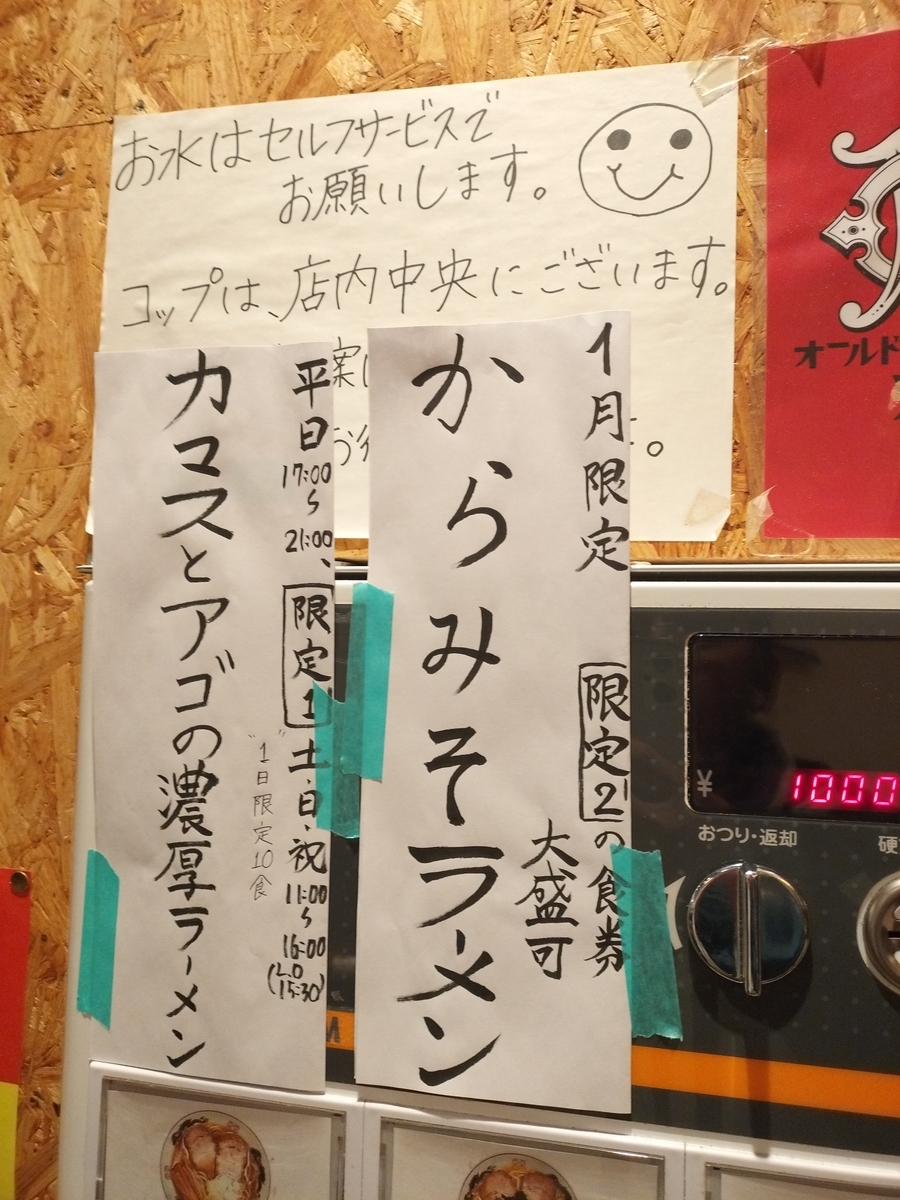 お水はセルフサービスで
お願いします。
コップは、店内中央にございます。
案
1月限定
限定2の食券
大盛可
からみそラーメン
平日
17:00
〜
21:00、
限定1
土・日・祝
11:00
〜
16:00
(L.O
15:30)
"1日限定10食"
カマスとアゴの濃厚ラーメン
オールド
¥
1000
おつり・返却
硬